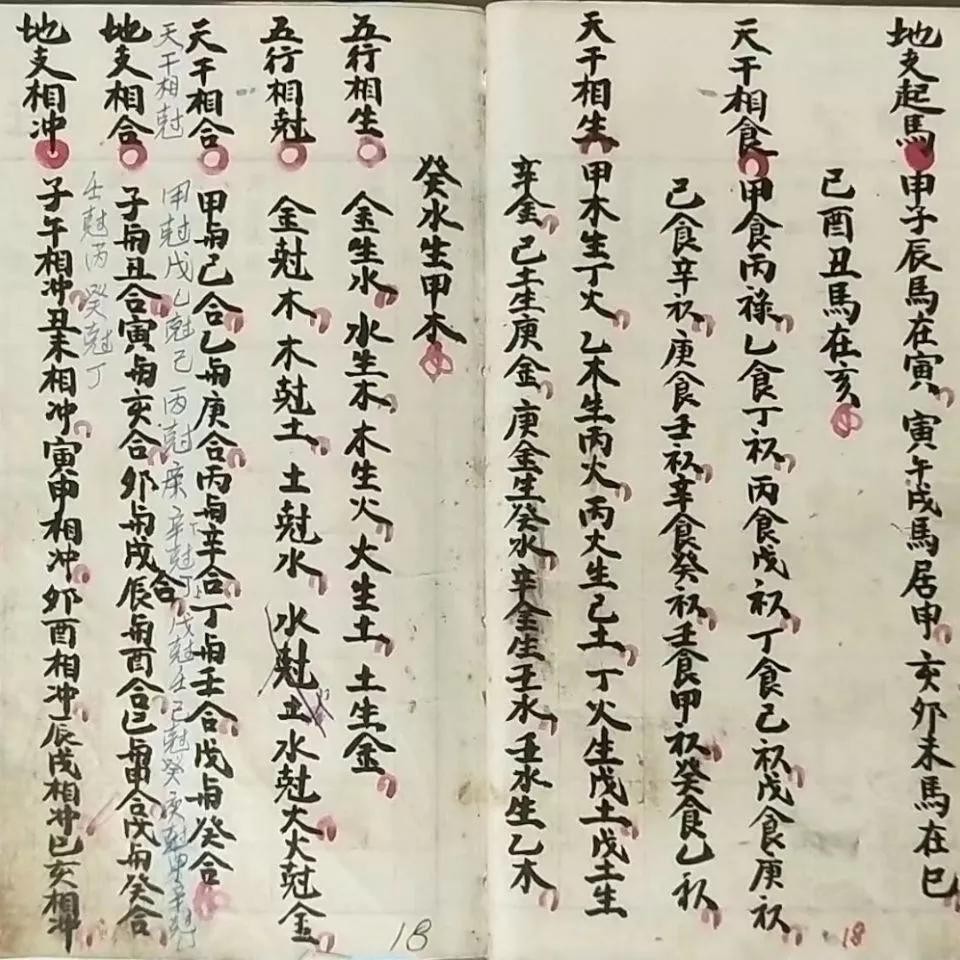 地支起馬 甲子辰馬在寅 寅午戌馬居申 亥卯未馬在巳
巳酉丑馬在亥
天干相食 甲食丙祿 乙食丁祿 丙食戊祿 丁食己祿 戊食庚祿
己食辛祿 庚食壬祿 辛食癸祿 壬食甲祿 癸食乙祿
天干相生 甲木生丁火 乙木生丙火 丙火生己土 丁火生戊土 戊土生
辛金 己土生庚金 庚金生癸水 辛金生壬水 壬水生乙木
癸水生甲木
五行相生 金生水 水生木 木生火 火生土 土生金
五行相尅 金尅木 木尅土 土尅水 水尅土 水尅火 火尅金
天干相合 甲與己合 乙與庚合 丙與辛合 丁與壬合 戊與癸合
天干相尅 甲尅戊 乙尅己 丙尅庚 辛尅丁 戊尅壬 己尅癸 庚尅甲
地支相合 子與丑合 寅與亥合 卯與戌合 辰與酉合 巳與申合 戊與癸合
壬尅丙 癸尅丁
地支相冲 子午相冲 丑未相冲 寅申相冲 卯酉相冲 辰戌相冲 巳亥相冲
18
18